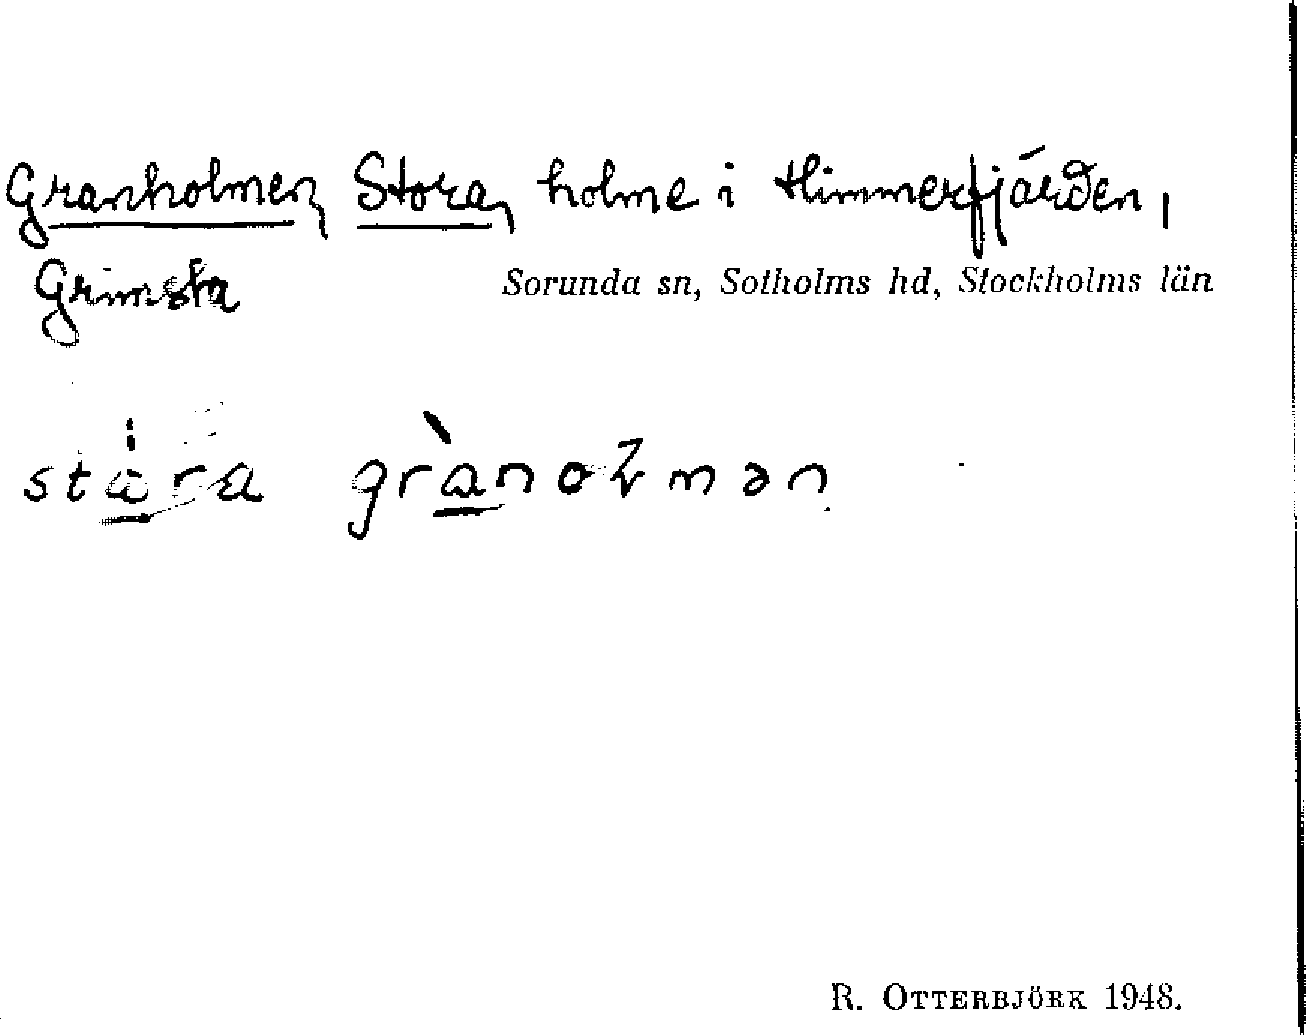 Granholmen, Stora, holme i Himmerfjärden,
Grimsta Sorunda sn, Sotholms hd, Stockholms län
stara granoɫmən
R. OTTERBJÖRK 1948.